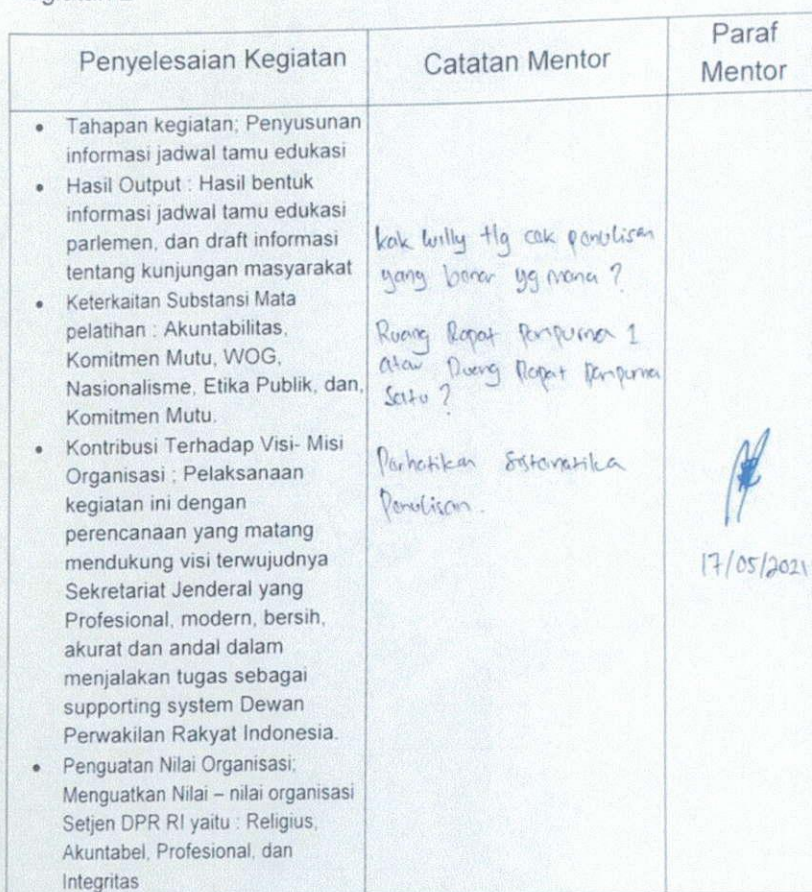 Penyelesaian Kegiatan
Catatan Mentor
Paraf
Mentor
• Tahapan kegiatan; Penyusunan
informasi jadwal tamu edukasi
• Hasil Output : Hasil bentuk
informasi jadwal tamu edukasi
parlemen, dan draft informasi
tentang kunjungan masyarakat
• Keterkaitan Substansi Mata
pelatihan : Akuntabilitas,
Komitmen Mutu, WOG,
Nasionalisme, Etika Publik, dan,
Komitmen Mutu.
• Kontribusi Terhadap Visi- Misi
Organisasi : Pelaksanaan
kegiatan ini dengan
perencanaan yang matang
mendukung visi terwujudnya
Sekretariat Jenderal yang
Profesional, modern, bersih,
akurat dan andal dalam
menjalakan tugas sebagai
supporting system Dewan
Perwakilan Rakyat Indonesia.
• Penguatan Nilai Organisasi;
Menguatkan Nilai – nilai organisasi
Setjen DPR RI yaitu : Religius,
Akuntabel, Profesional, dan
Integritas
kak willy tlg cek penulisan
yang benar yg mana ?
Ruang Rapat Paripurna 1
atau Ruang Rapat Paripurna
Satu ?
Perhatikan Sistematika
Penulisan.
17/05/2021